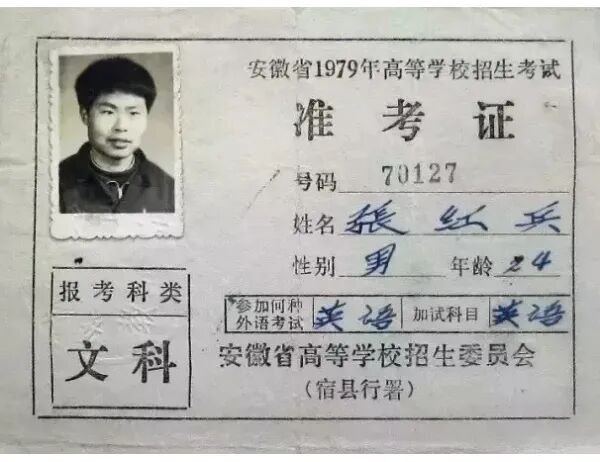 安徽省1979年高等学校招生考试
准考证
号码 70127
姓名 張红兵
性别 男 年龄 24
报考科类
文科
参加何种外语考试 英语 加试科目 英语
安徽省高等学校招生委员会
(宿县行署)